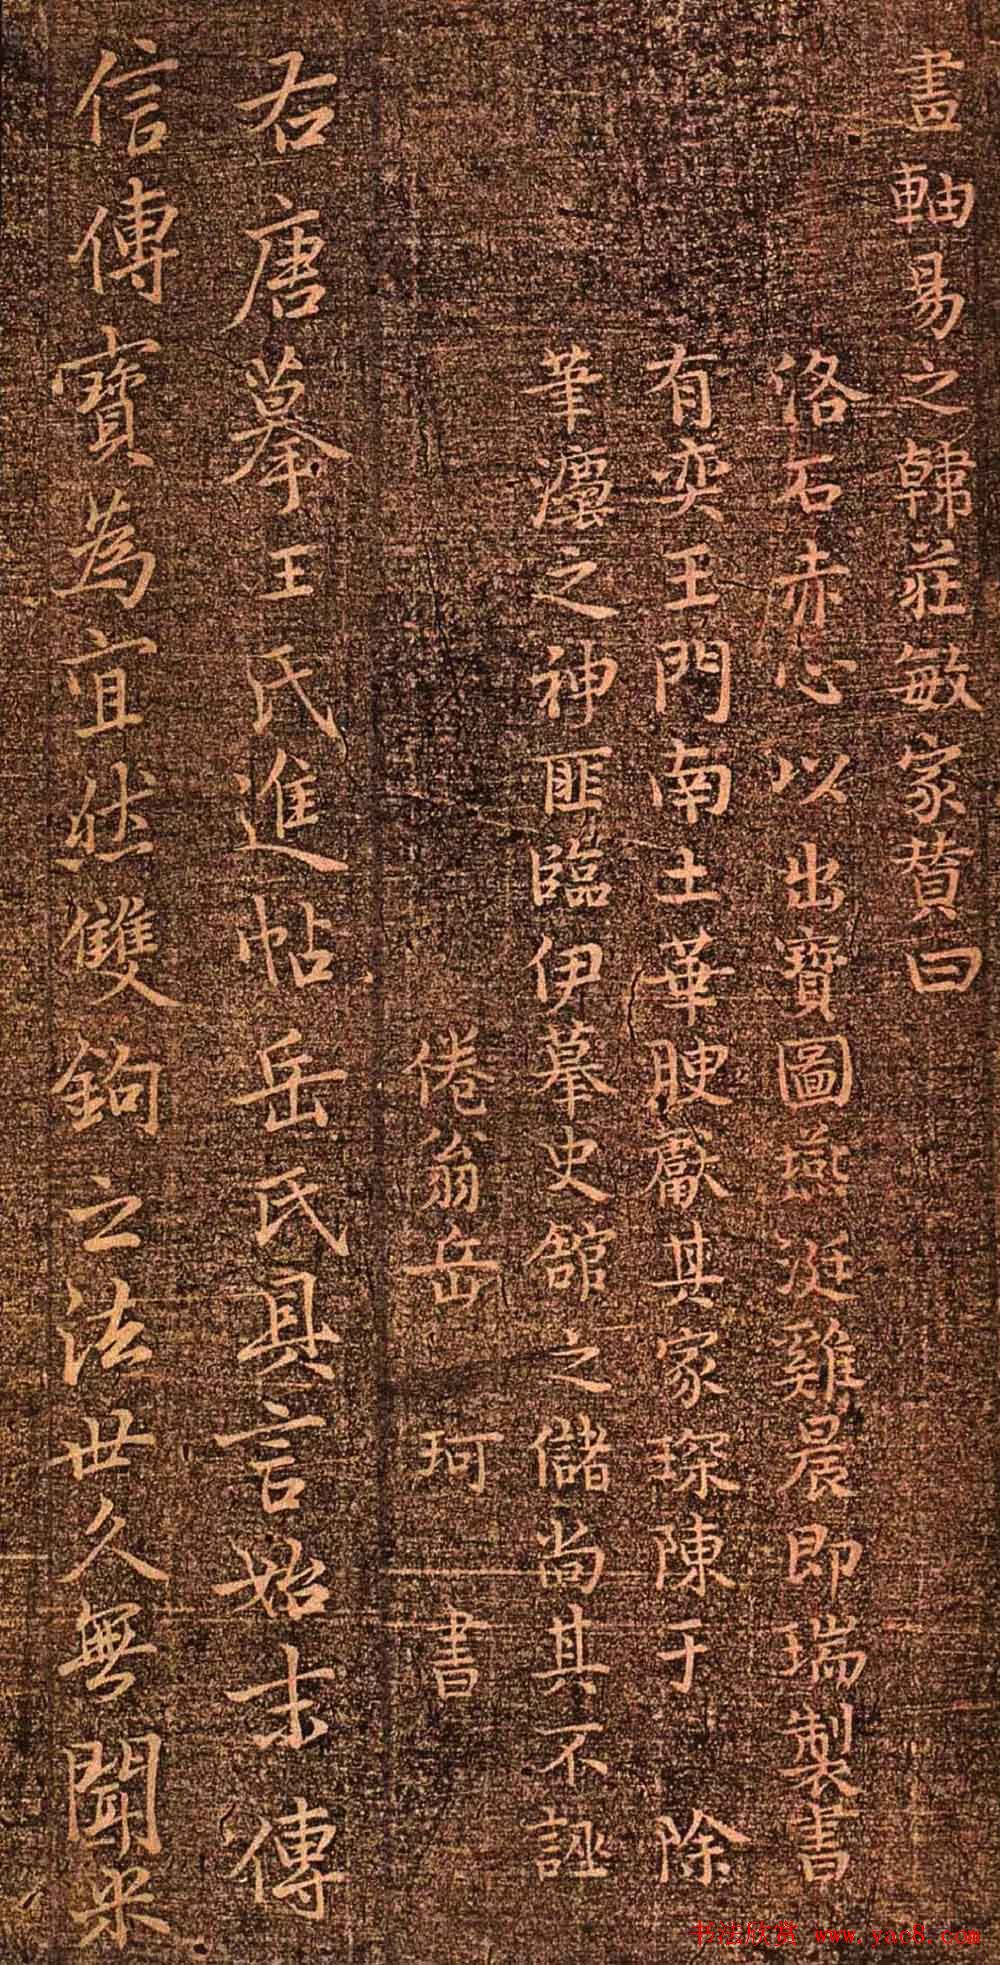 畫軸易之韓莊敏家賛曰
洛石赤心以出寶圖燕涎雞晨即瑞製書
有奕王門南土華腴獻其家琛陳于除
筆灋之神匪臨伊摹史館之儲尚其不誣
倦翁岳珂書
右唐摹王氏進帖岳氏具言始末傳
信傳寶為宜然雙鉤之法世久無聞米
书法欣赏 www.yac8.com